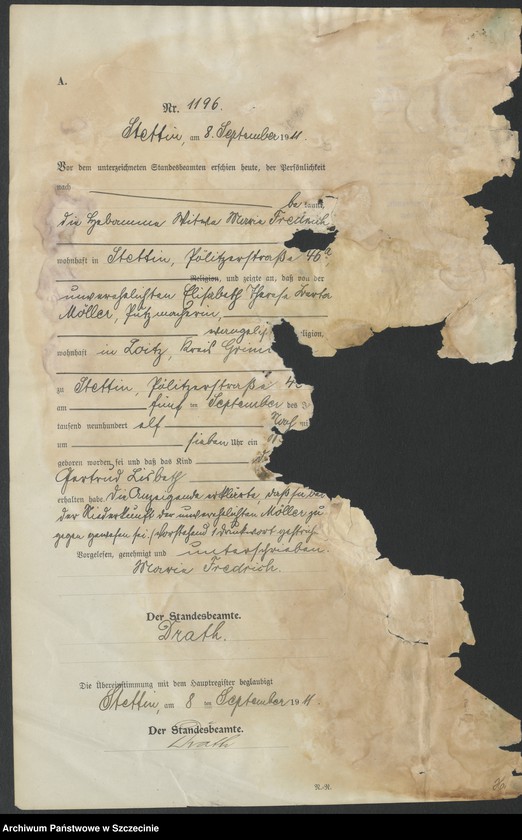 A.
Nr. 1196.
Stettin, am 8. September 1911.
Vor dem unterzeichneten Standesbeamten erschien heute, der Persönlichkeit
nach
be kannt,
die Hebamme Witwe Marie Fredrich
wohnhaft in Stettin, Pölitzerstraße 46a
Religion, und zeigte an, daß von der
unverehelichten Elisabeth Therese Berta
Möller, Putzmacherin,
evangelisch ligion,
wohnhaft in Loitz, Kreis Grim
zu Stettin, Pölitzerstraße 4
am fünf ten September des
tausend neunhundert elf Nach mi
um sieben Uhr ein
geboren worden sei und daß das Kind
Gertrud Lisbeth
erhalten habe. Die Anzeigende erklärte, daß sie bei
der Niederkunft der unverehelichten Möller zu
gegen gewesen sei. (Vorstehend 1 Druckwort gestrich
Vorgelesen, genehmigt und unterschrieben.
Marie Fredrich.
Der Standesbeamte.
Drath.
Die Übereinstimmung mit dem Hauptregister beglaubigt
Stettin, am 8 ten September 1911.
Der Standesbeamte.
Drath
N.-R.
Archiwum Państwowe w Szczecinie